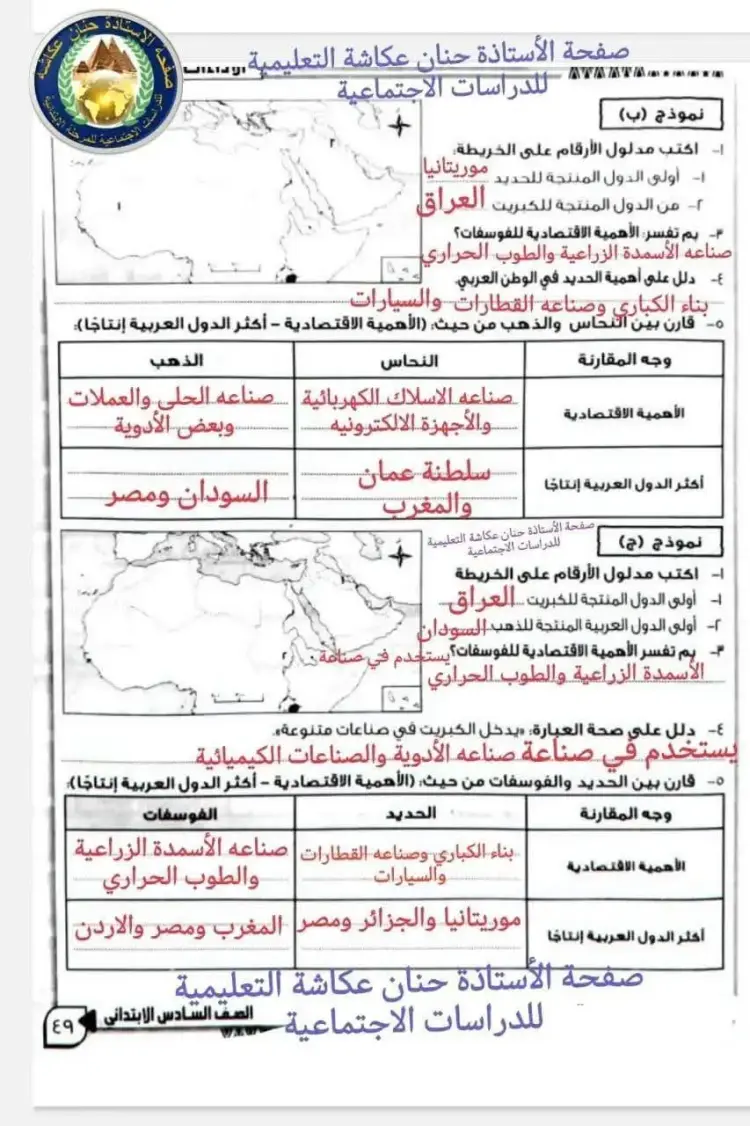 صفحة الأستاذة حنان عكاشة التعليمية
للدراسات الاجتماعية
صفحة الاستاذة حنان عكاشة
للدراسات الاجتماعية للمرحلة الابتدائية
نموذج (ب)
١- اكتب مدلول الأرقام على الخريطة:
١- أولى الدول المنتجة للحديد موريتانيا
٢- من الدول المنتجة للكبريت العراق
٣- بم تفسر: الأهمية الاقتصادية للفوسفات؟
صناعه الأسمدة الزراعية والطوب الحراري
٤- دلل على أهمية الحديد في الوطن العربي.
بناء الكباري وصناعه القطارات والسيارات
٥- قارن بين النحاس والذهب من حيث: (الأهمية الاقتصادية - أكثر الدول العربية إنتاجًا):
وجه المقارنة النحاس الذهب
الأهمية الاقتصادية صناعه الاسلاك الكهربائية صناعه الحلى والعملات
والأجهزة الالكترونيه وبعض الأدوية
أكثر الدول العربية إنتاجًا سلطنة عمان السودان ومصر
والمغرب
صفحة الأستاذة حنان عكاشة التعليمية
للدراسات الاجتماعية
نموذج (ج)
١- اكتب مدلول الأرقام على الخريطة
١- أولى الدول المنتجة للكبريت العراق
٢- أولى الدول العربية المنتجة للذهب السودان
٣- بم تفسر الأهمية الاقتصادية للفوسفات؟ يستخدم في صناعة
الأسمدة الزراعية والطوب الحراري
٤- دلل على صحة العبارة: «يدخل الكبريت في صناعات متنوعة».
يستخدم في صناعة صناعه الأدوية والصناعات الكيميائية
٥- قارن بين الحديد والفوسفات من حيث: (الأهمية الاقتصادية - أكثر الدول العربية إنتاجًا):
وجه المقارنة الحديد الفوسفات
الأهمية الاقتصادية بناء الكباري وصناعه القطارات صناعه الأسمدة الزراعية
والسيارات والطوب الحراري
أكثر الدول العربية إنتاجًا موريتانيا والجزائر ومصر المغرب ومصر والاردن
صفحة الأستاذة حنان عكاشة التعليمية
للدراسات الاجتماعية
الصف السادس الابتدائي
٤٩